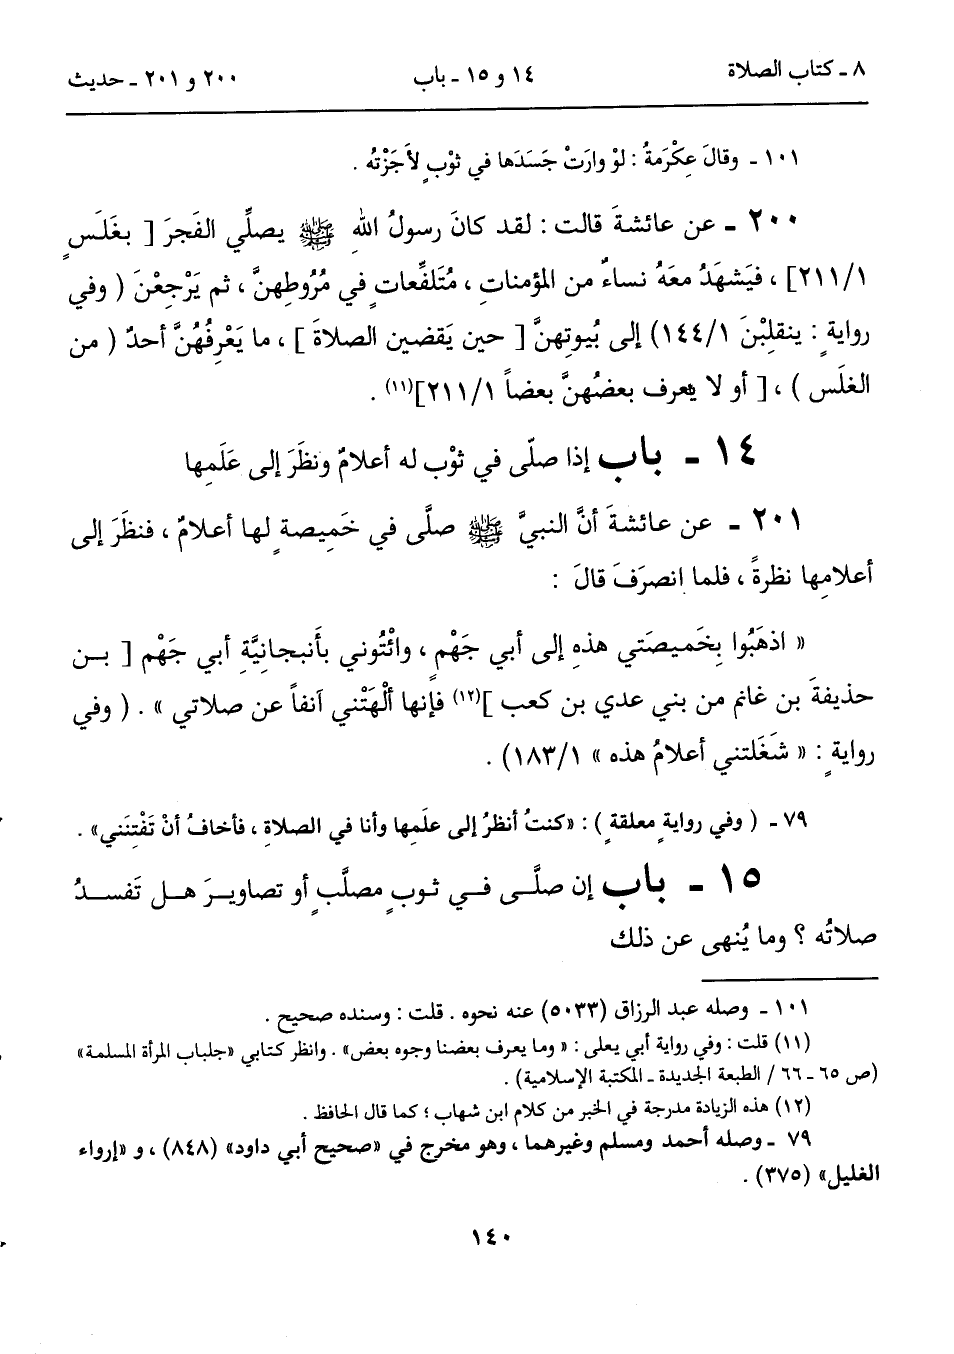 ٨ ـ كتاب الصلاة ١٤ و ١٥ ـ باب ٢٠٠ و ٢٠١ ـ حديث
١٠١ ـ وقالَ عِكْرَمةُ : لوْ وارَتْ جَسَدَها في ثوْبٍ لأجَزْتُه .
٢٠٠ ـ عن عائشةَ قالت : لقد كانَ رسولُ اللهِ ﷺ يصلِّي الفَجرَ [ بغَلَسٍ
٢١١/١] ، فيَشهَدُ معَهُ نساءٌ من المؤمناتِ ، مُتَلفِّعاتٍ في مُرُوطِهنَّ ، ثم يَرْجِعْنَ ( وفي
روايةٍ : ينقلِبْنَ ١٤٤/١) إلى بُيوتهنَّ [ حين يَقضين الصلاةَ ] ، ما يَعْرِفُهُنَّ أحدٌ ( من
الغلَس ) ، [ أو لا يعرف بعضُهنَّ بعضاً ٢١١/١](١١) .
١٤ ـ باب إذا صلّى في ثوْب له أعلامٌ ونظَرَ إلى عَلَمِها
٢٠١ ـ عن عائشةَ أنَّ النبيَّ ﷺ صلَّى في خَمِيصةٍ لها أعلامٌ ، فنظَرَ إلى
أعلامِها نظرةً ، فلما انصرَفَ قالَ :
« اذهَبُوا بِخَميصَتي هذهِ إلى أبي جَهْمٍ ، وائْتُوني بأَنبجانِيَّةِ أبي جَهْم [ بـن
حذيفةَ بن غانم من بني عدي بن كعب ](١٢) فإنها ألْهَتْني آنفاً عن صلاتي » . ( وفي
روايةٍ : « شَغَلتني أعلامُ هذه » ١٨٣/١) .
٧٩ ـ ( وفي روايةٍ معلقةٍ ) : «كنتُ أنظرُ إلى علَمِها وأنا في الصلاةِ ، فأخافُ أنْ تَفْتِنَني» .
١٥ ـ باب إن صلَّـى فـي ثـوبٍ مصلَّبٍ أو تصاويـرَ هـل تَفسـدُ
صلاتُه ؟ وما يُنهى عن ذلك
١٠١ ـ وصله عبد الرزاق (٥٠٣٣) عنه نحوه . قلت : وسنده صحيح .
(١١) قلت : وفي رواية أبي يعلى : « وما يعرف بعضنا وجوه بعض» . وانظر كتابي «جلباب المرأة المسلمة»
(ص ٦٥ ـ ٦٦ / الطبعة الجديدة ـ المكتبة الإسلامية) .
(١٢) هذه الزيادة مدرجة في الخبر من كلام ابن شهاب ؛ كما قال الحافظ .
٧٩ ـ وصله أحمد ومسلم وغيرهما ، وهو مخرج في «صحيح أبي داود» (٨٤٨) ، و «إرواء
الغليل» (٣٧٥) .
١٤٠